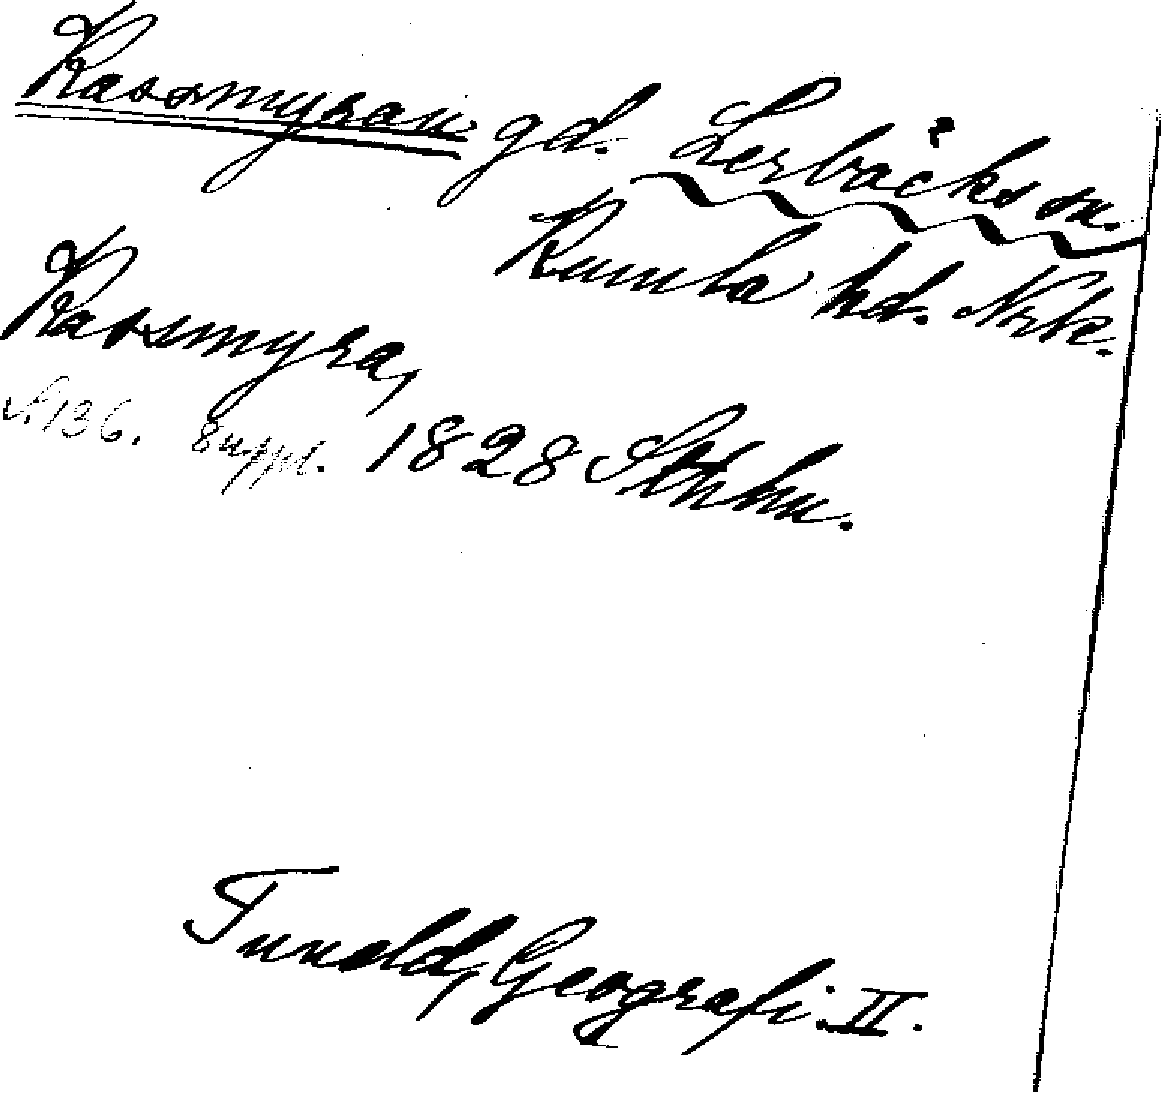 Kassmyran gd. Lerbäcks sn.
Kumla hd. Nrk.
Kassmyra,
s. 136. Suppl. 1828 Sthlm.
Tuneld, Geografi. II.